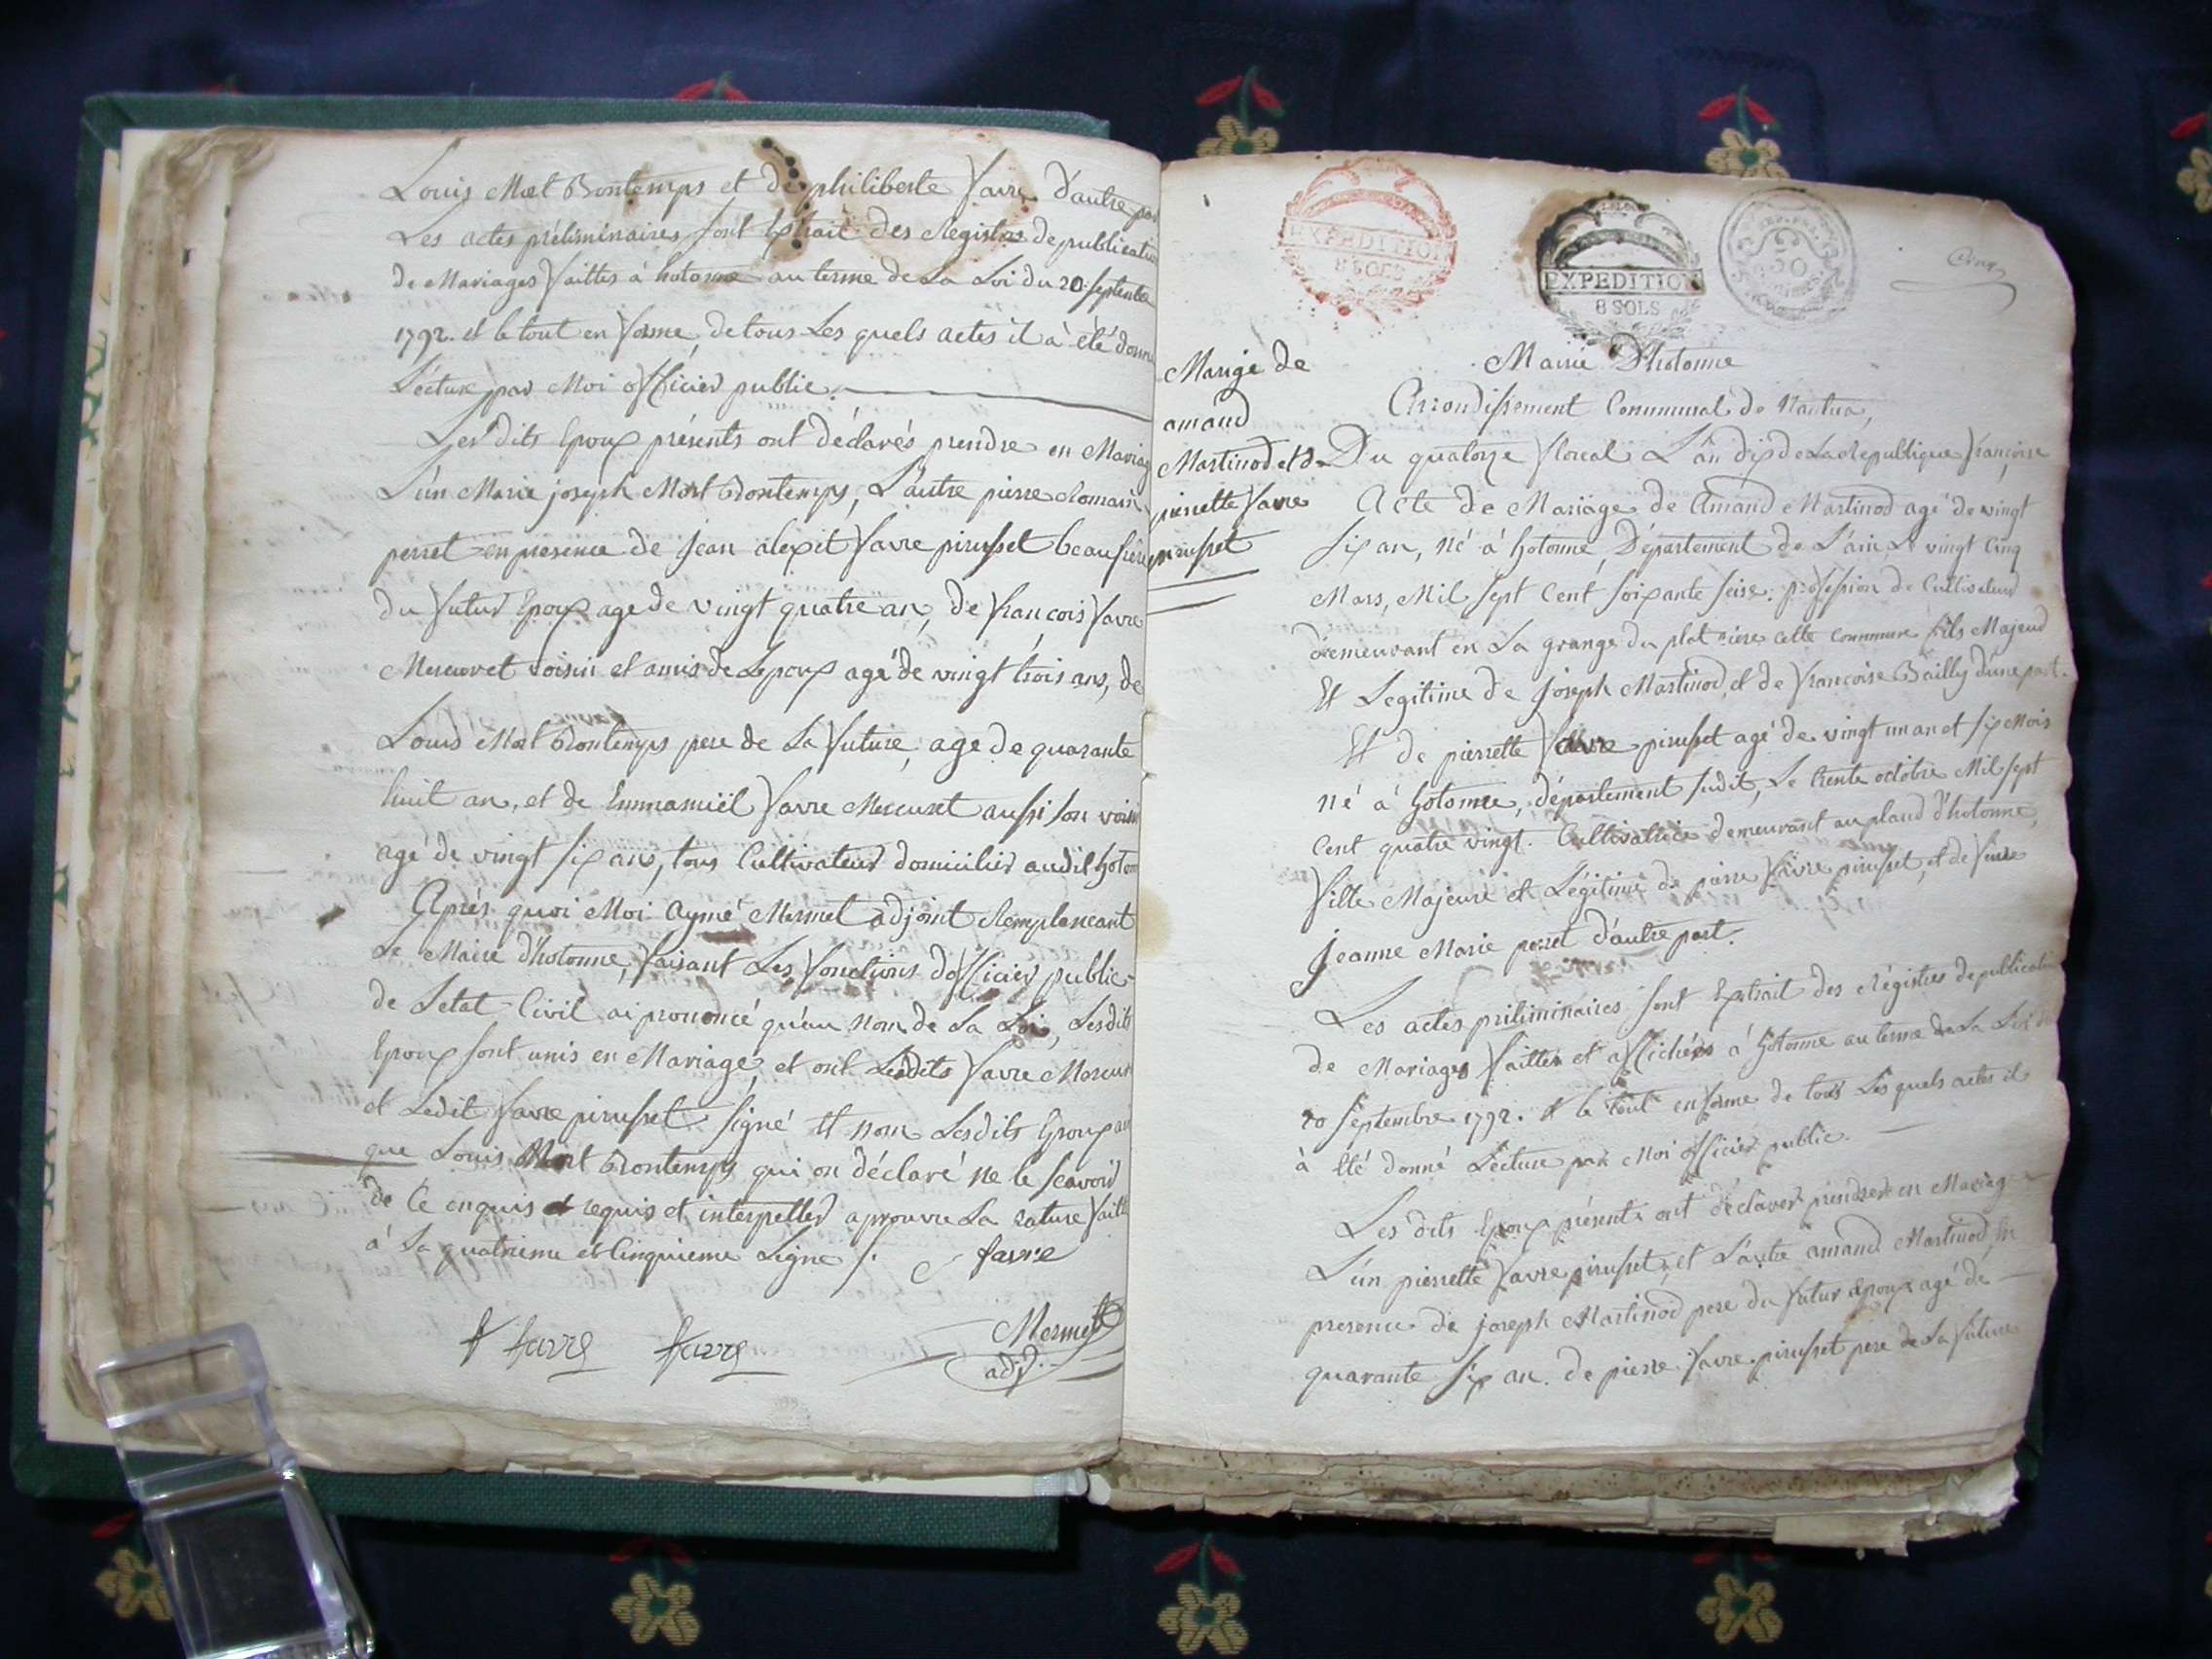 Louis Mort Bontemps et de philiberte favre d'autre part
Les actes préliminaires sont Extrait des Registres de publication
de Mariages faittes à hotonne au terme de La Loi du 20 septembre
1792. et le tout en forme, de tous Les quels actes il à été donné
Lecture par Moi officier public.
Les dits Epoux présents ont déclarés prendre en Mariage
L'ún Marie joseph Mort Bontemps, L'autre pierre Romain
perret en presence de Jean alexit favre pirusset beaufrere
du futur Epoux age de vingt quatre an, de françois favre
Mercuret voisin et amis de Lepoux agé de vingt trois ans, de
Louis Mort Bontemps pere de La future, age de quarante
huit an, et de Emmamuël favre Mercuret aussi son voisin
agé de vingt six ans, tous Cultivateur domicilier audit hoton
Après quoi Moi Aymé Mermet adjoint Remplancant
Le Maire D'hotonne, faisant Les fonctions d'officier public
de Letat-Civil ai prononcé qu'au nom de La Loi, Lesdits
Epoux sont unis en Mariage, et ont Lesdits favre Mercuret
et Ledit favre pirusset signé et non Lesdits Epoux
que Louis Mort Bontemps qui on déclaré ne le scavoir
de Ce enquis et requis et interpeller aprouvu La rature faitte
à La quatrieme et Cinquieme Ligne /. favre
f favre favre Mermet
adjt.
EXPEDITION
8 SOLS
EXPEDITION
8 SOLS
50
Marige de
amand
Martinod et de
pierrette favre
pirusset
Mairie D'hotonne
Arrondissement Communal de Nantua,
Du quatorze floreal L'an dix de La Republique françoise
Acte de Mariage de Amand Martinod agé de vingt
six an, né à hotonne, Département de L'ain Le vingt Cinq
Mars, Mil sept Cent soixante seise. profession de Cultivateur
demeurant en La grange du plat riere cette Commune fils Majeur
Et Legitime de Joseph Martinod, et de françoise Bailly d'une part.
Et de pierrette favre pirusset agé de vingt un an et six Mois
né à hotonne, département sudit, Le trente octobre Mil sept
Cent quatre vingt. Cultivatrice demeurant au pland d'hotonne,
fille Majeure et Légitime de pierre favre pirusset, et de feue
Jeanne Marie perret d'autre part.
Les actes priliminaires sont Extrait des Régistres de publication
de Mariages faittes et affichées à hotonne au terme de La Loi du
20 septembre 1792. et le tout en forme de tous Les quels actes il
à Eté donné Lecture par Moi officier public.
Les dits Epoux présents ont déclarer prendre en Mariage
L'ún pierrette favre pirusset, et L'autre amand Martinod, en
presence de joseph Martinod pere du futur epoux agé de
quarante six an. de pierre favre pirusset pere de La future